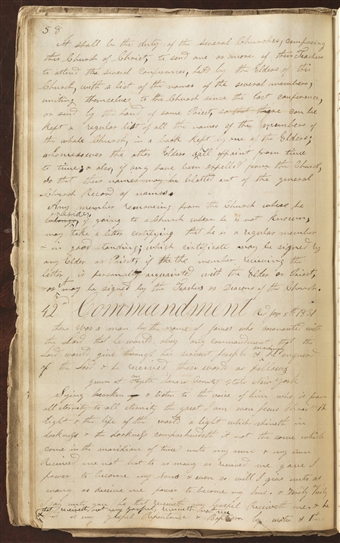 58
It shall be the duty of the several Churches, composing
this Church of Christ, to send one or more of their Teachers
to attend the several conferences, held by the Elders of this
Church, with a list of the names of the several members,
uniting themselves to the Church since the last conference,
or send by the hand of some Priest, so that there can be
kept a regular list of all the names of the members of
the whole Church, in a book kept by one of the Elders;
whomsoever the other Elders shall appoint from time
to time; & also if any have been expelled from the Church,
so that their names may be blotted out of the general
Church Record of names.
Any member removing from the Church where he
resides
if going to a Church where he is not known,
may take a letter certifying that he is a regular member
in good standing; which certificate may be signed by
any Elder or Priest, if the member receiving the
letter, is personally acquainted with the Elder or Priest,
or it may be signed by the Teachers or Deacons of the Church.
42nd Commandment 5th 1831
There was a man by the name of James who covenanted with
the Lord that he would obey any commandment that the
Lord would give through his servant Joseph &
of the Lord & he received these words as follows
given at Fayette Seneca County State New York
& listen to the voice of him who is from
all eternity to all eternity the great I am even Jesus Christ the
light & the life of the world a light which shineth in
darkness & the darkness comprehendeth it not the same which
came in the meridian of time unto my own & my own
received me not but to as many as received me gave I
power to become my Sons & even so will I give unto as
many as receive me power to become my Sons & Verily Verily
I say unto you he that receiveth my Gospel receiveth me & he
that receiveth not my Gospel receiveth not me
my Gospel Repentance & Baptism by water &